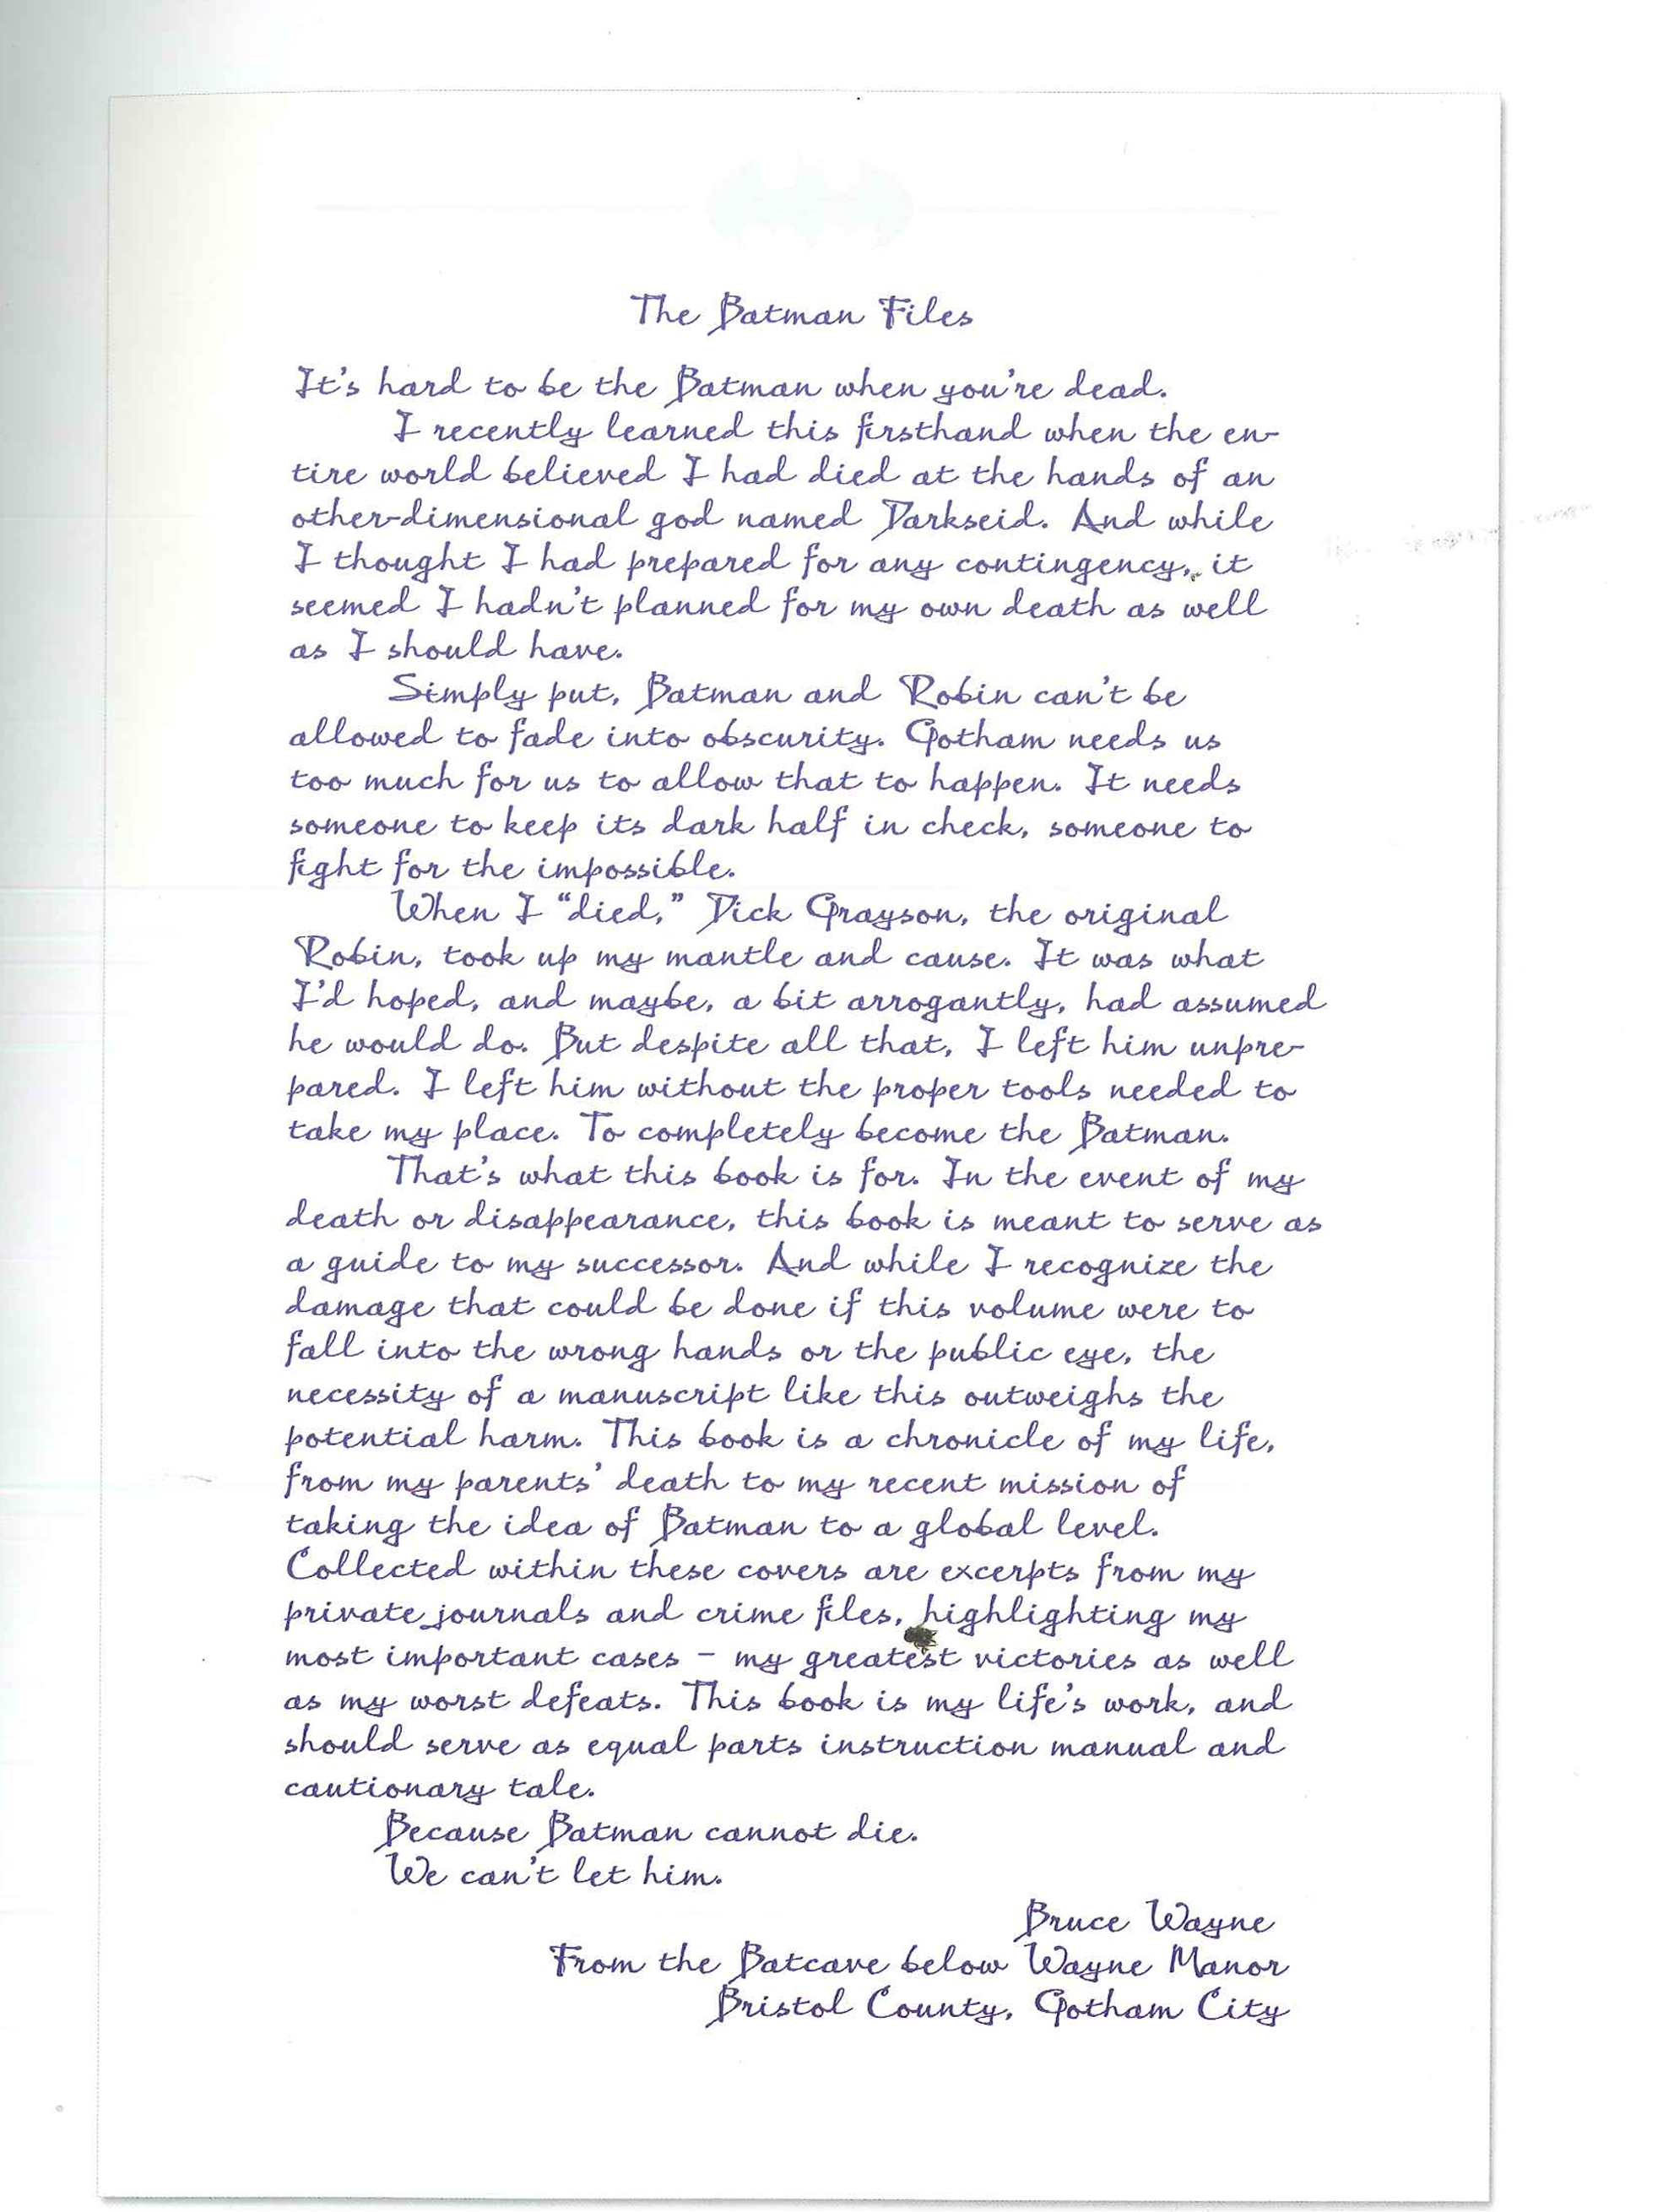 The Batman Files
It's hard to be the Batman when you're dead.
I recently learned this firsthand when the en-
tire world believed I had died at the hands of an
other-dimensional god named Darkseid. And while
I thought I had prepared for any contingency, it
seemed I hadn't planned for my own death as well
as I should have.
Simply put, Batman and Robin can't be
allowed to fade into obscurity. Gotham needs us
too much for us to allow that to happen. It needs
someone to keep its dark half in check, someone to
fight for the impossible.
When I “died,” Dick Grayson, the original
Robin, took up my mantle and cause. It was what
I'd hoped, and maybe, a bit arrogantly, had assumed
he would do. But despite all that, I left him unpre-
pared. I left him without the proper tools needed to
take my place. To completely become the Batman.
That's what this book is for. In the event of my
death or disappearance, this book is meant to serve as
a guide to my successor. And while I recognize the
damage that could be done if this volume were to
fall into the wrong hands or the public eye, the
necessity of a manuscript like this outweighs the
potential harm. This book is a chronicle of my life,
from my parents' death to my recent mission of
taking the idea of Batman to a global level.
Collected within these covers are excerpts from my
private journals and crime files, highlighting my
most important cases – my greatest victories as well
as my worst defeats. This book is my life's work, and
should serve as equal parts instruction manual and
cautionary tale.
Because Batman cannot die.
We can't let him.
Bruce Wayne
From the Batcave below Wayne Manor
Bristol County, Gotham City